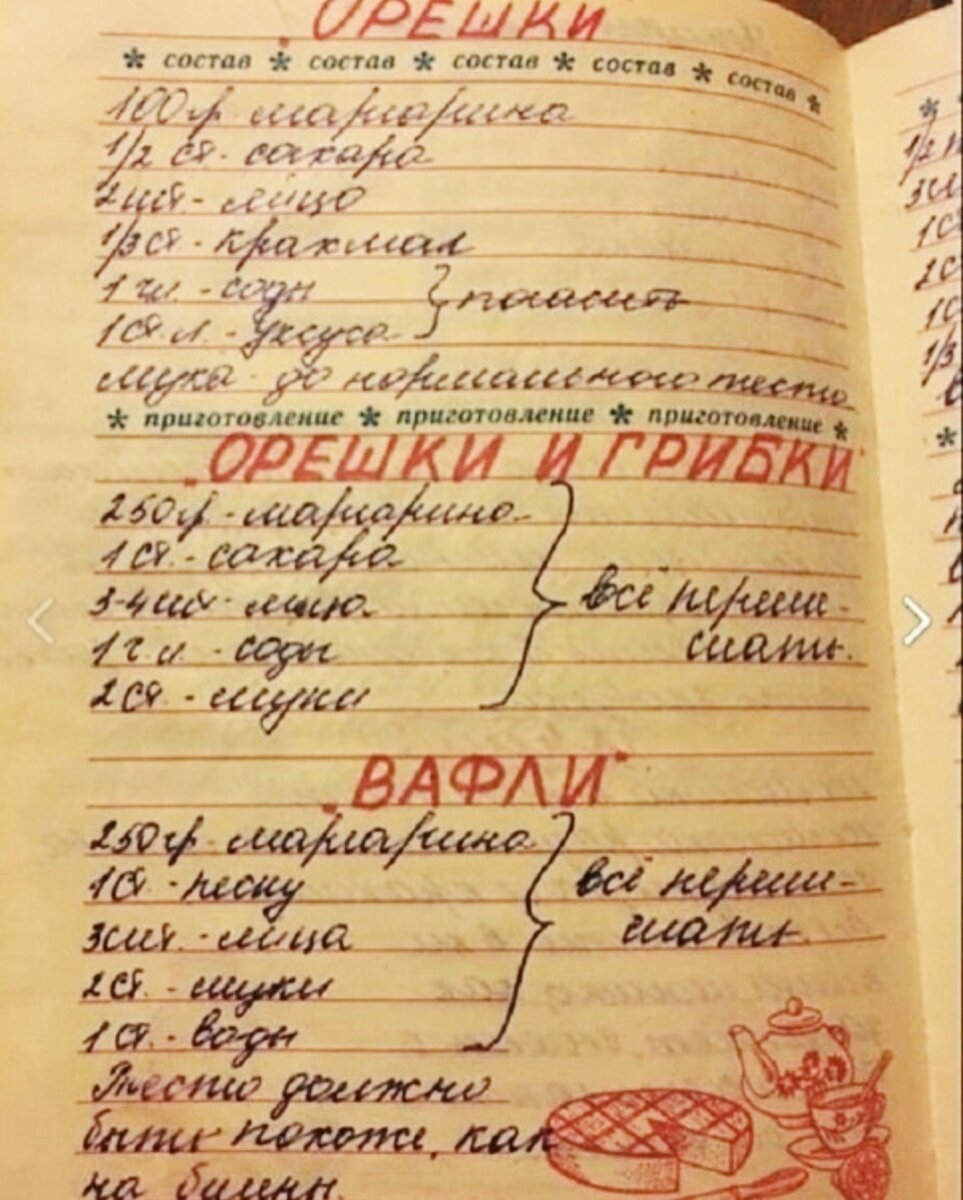 „ОРЕШКИ
* состав * состав * состав * состав * состав *
100 гр. маргарина
1/2 ст. - сахара
2 шт. - яйцо
1/3 ст. - крахмал
1 ч.л. - соды } погасить
1 ст. л. - уксуса
мука - до нормального теста
* приготовление * приготовление * приготовление *
„ОРЕШКИ И ГРИБКИ"
250 гр. - маргарина
1 ст. - сахара
3-4 шт - яйцо. } всё переме-
1 ч. л. - соды шать.
2 ст. - муки
„ВАФЛИ"
250 гр. - маргарина
1 ст. - песку } всё переме-
3 шт. - яйца шать.
2 ст. - муки
1 ст. - воды
Тесто должно
быть похоже, как
на блины.
1/2
1/3